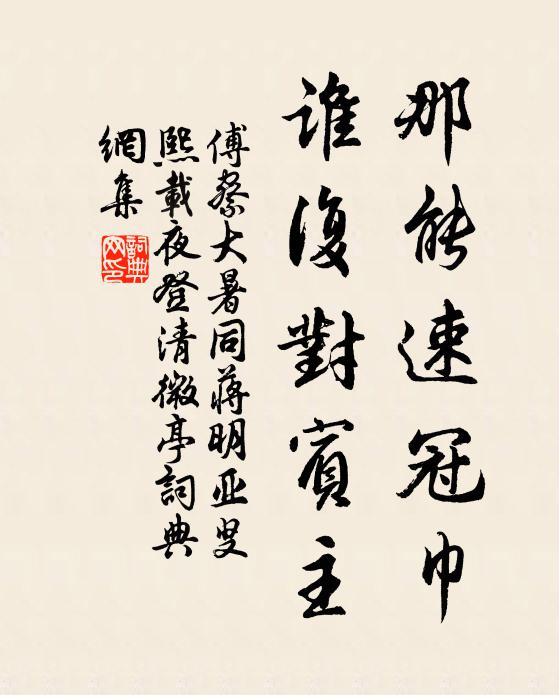 那能速冠巾
誰復對賓主
傅察大暑同蔣明亚叟
熙載夜登清微亭詞典
網集
詞典
网印